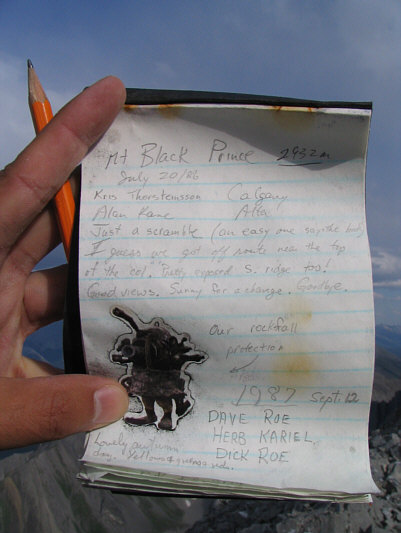 Mt Black Prince 2932m
July 20/86
Kris Thorsteinsson Calgary
Alan Kane Alta
Just a scramble (an easy one says the book)
I guess we got off route near the top
of the col. Pretty exposed S. ridge too!
Good views. Sunny for a change. Goodbye.
Our rockfall
protection
1987 Sept. 12
DAVE ROE
HERB KARIEL
DICK ROE
Lovely autumn
day. Yellows & greens & reds.